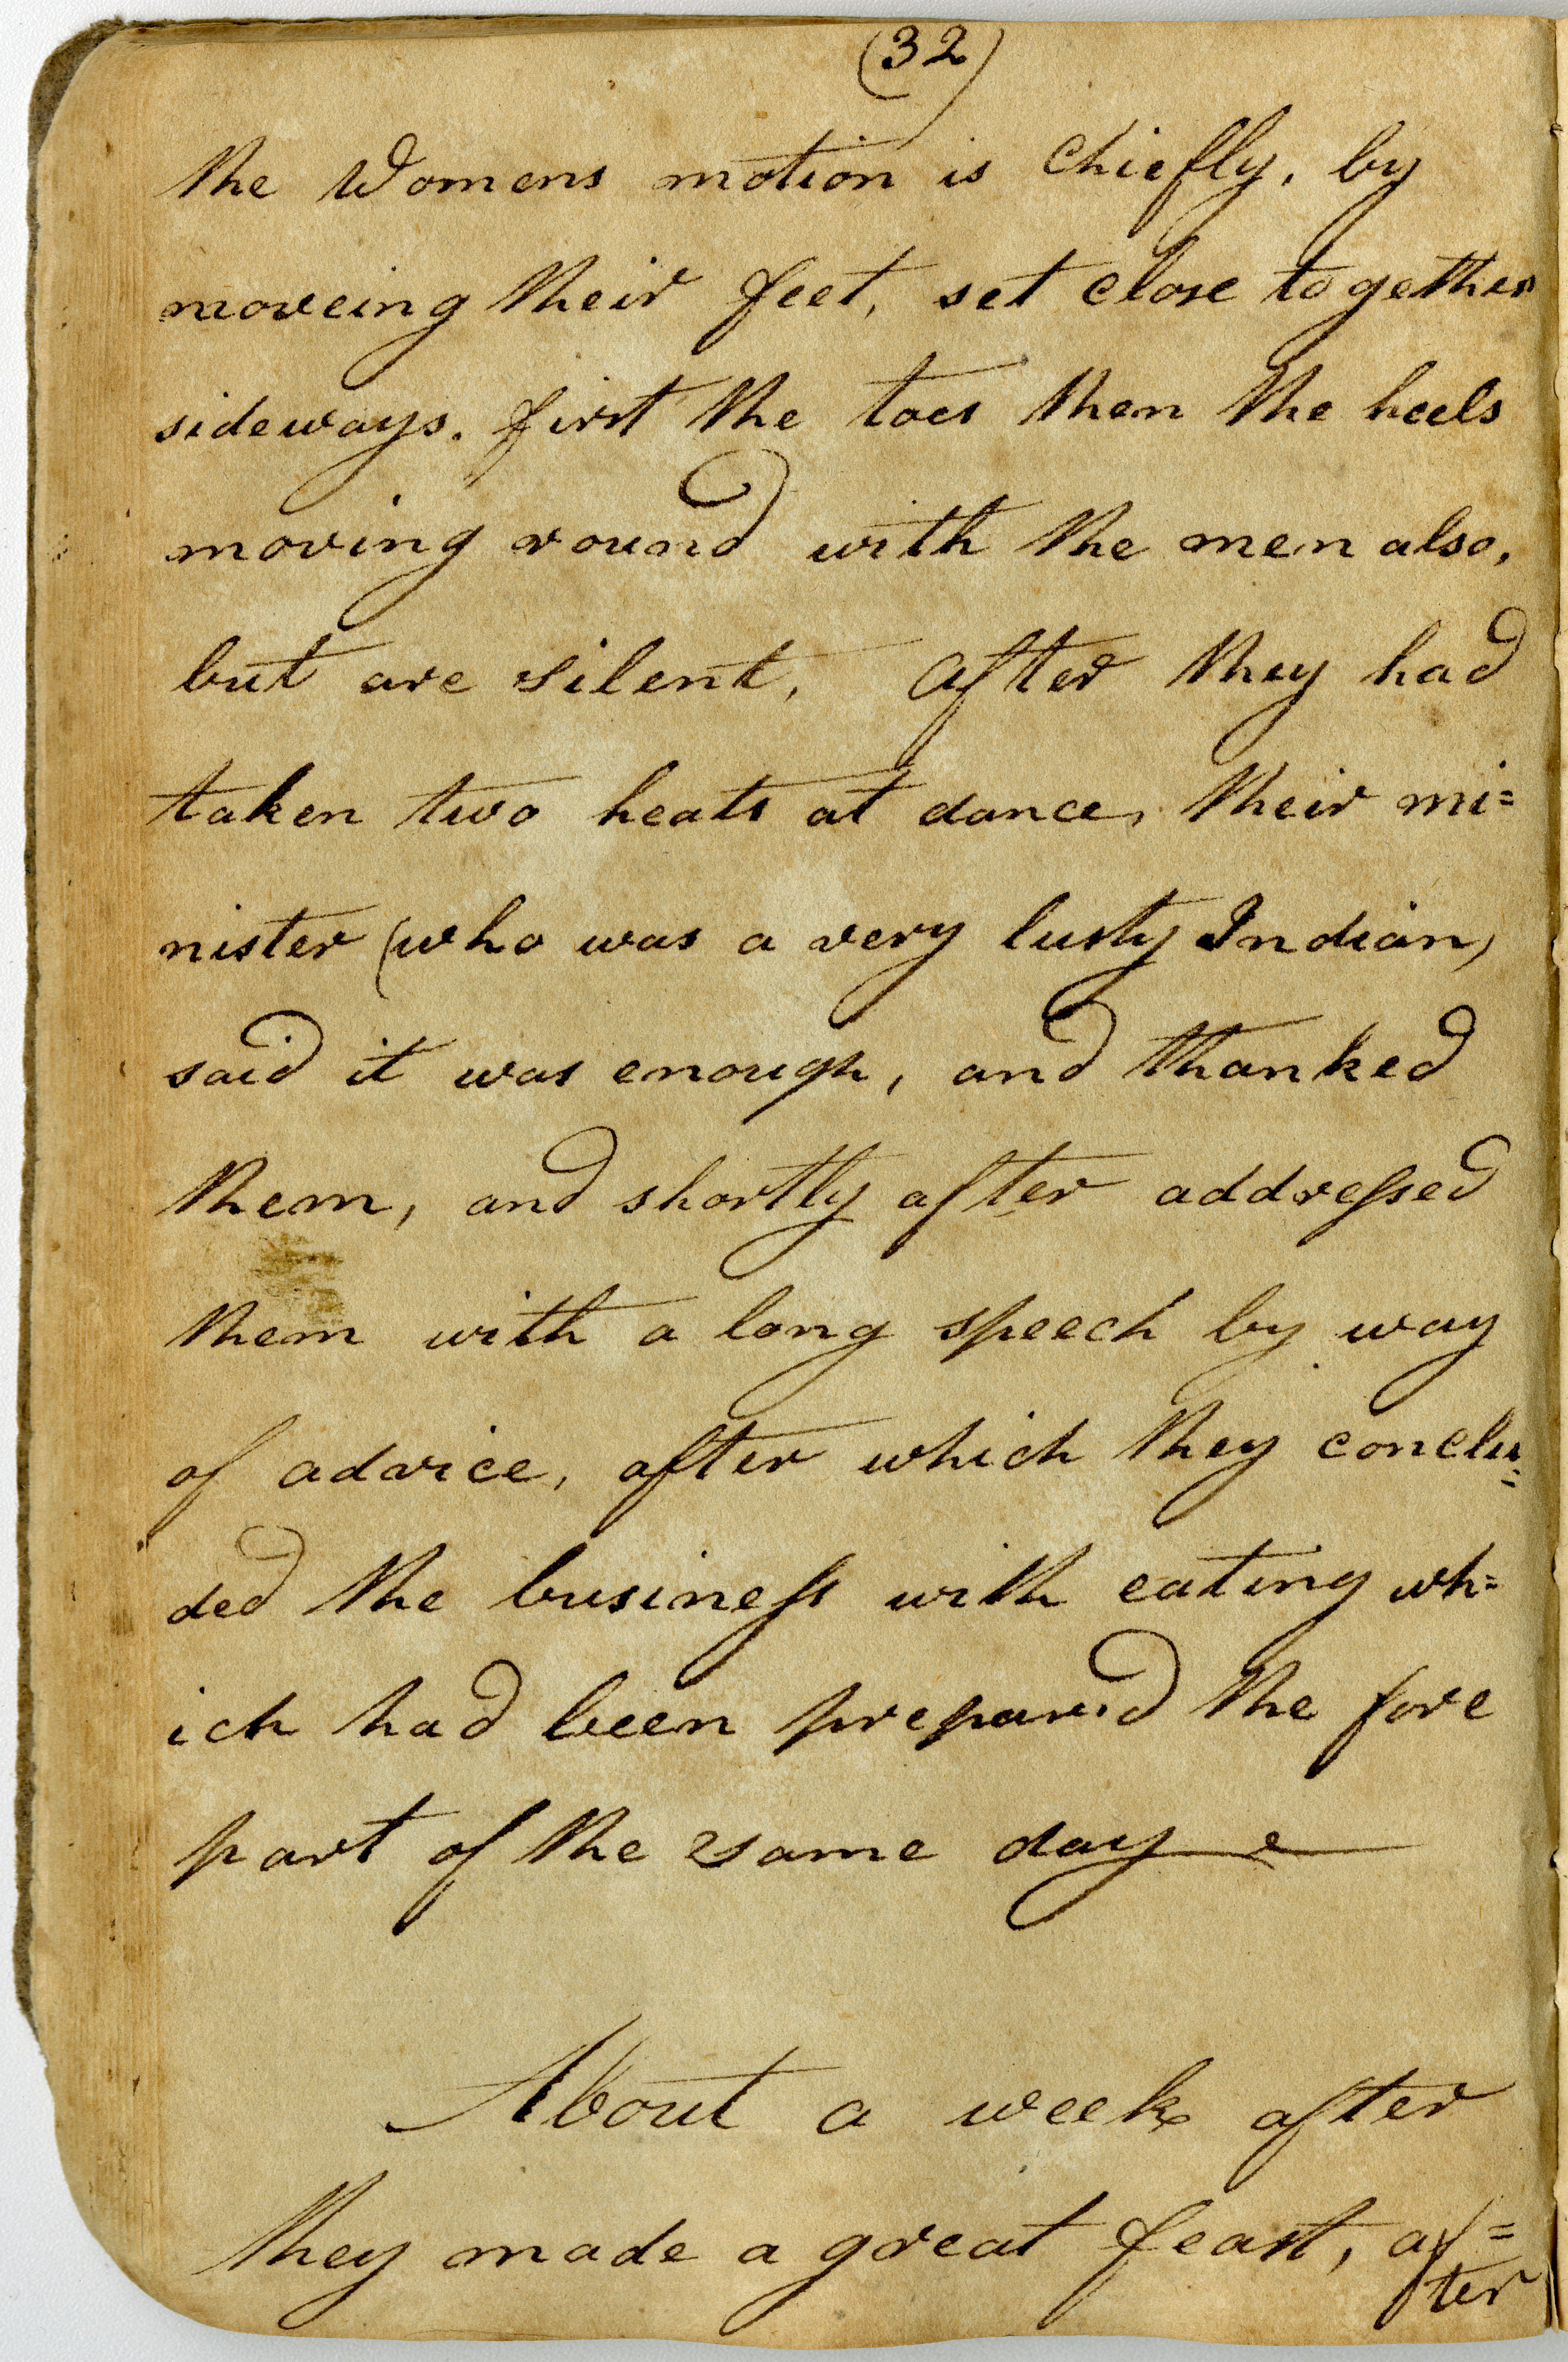 (32)
the Womens motion is Chiefly, by
moveing their feet, set close together
sideways. first the toes then the heels
moving round with the men also,
but are silent, After they had
taken two heats at dance, their mi=
nister (who was a very lusty Indian)
said it was enough, and thanked
them, and shortly after addressed
them with a long speech by way
of advice, after which they conclu=
ded the business with eating wh=
ich had been prepared the fore
part of the same day
About a week after
they made a great feast, af=
ter